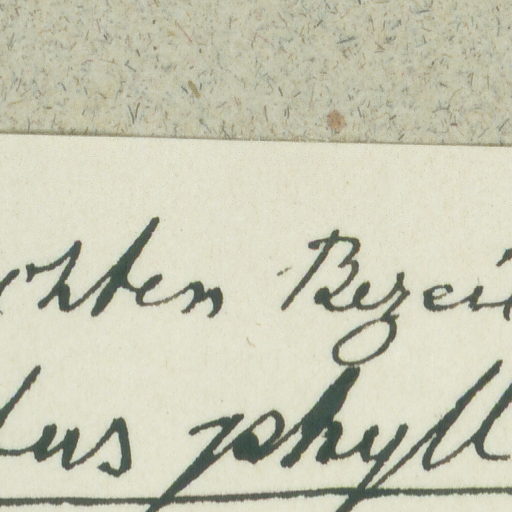 chten Bezei
tus phyll